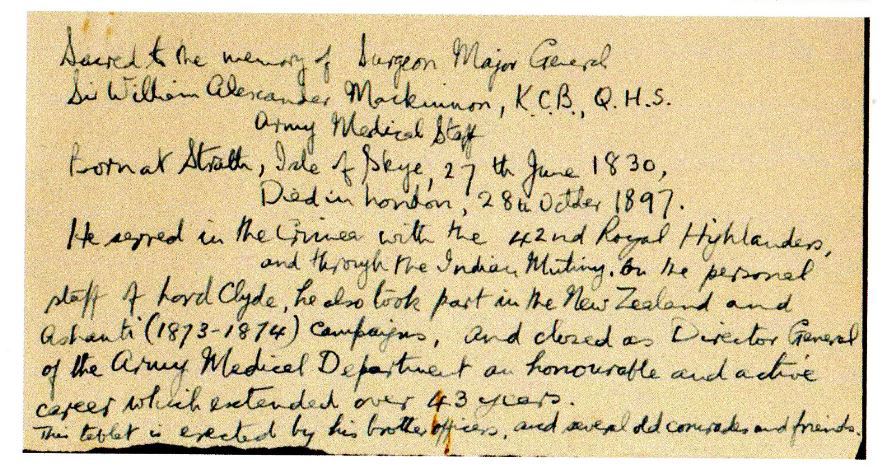 Sacred to the memory of Surgeon Major General
Sir William Alexander Mackinnon, K.C.B., Q.H.S.
Army Medical Staff
Born at Strath, Isle of Skye, 27th June 1830,
Died in London, 28th October 1897.
He served in the Crimea with the 42nd Royal Highlanders,
and through the Indian Mutiny. On the personal
staff of Lord Clyde, he also took part in the New Zealand and
Ashanti (1873-1874) campaigns, and closed as Director General
of the Army Medical Department an honourable and active
career which extended over 43 years.
This tablet is erected by his brother officers, and several old comrades and friends.